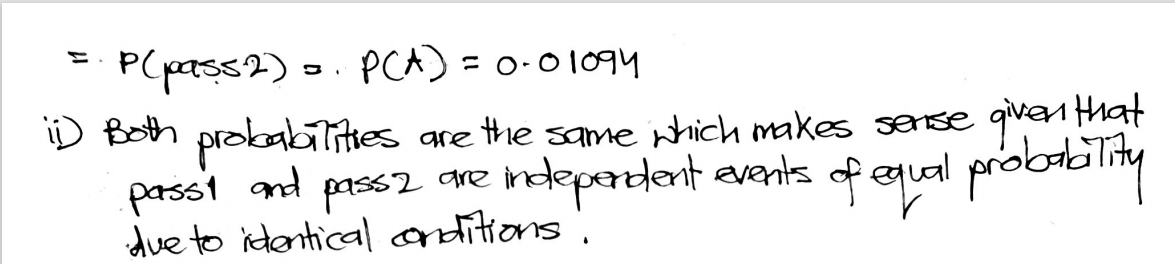 =. P(pass2) =. P(A) = 0.01094
ii) Both probabilities are the same which makes sense given that
pass1 and pass2 are independent events of equal probability
due to identical conditions.